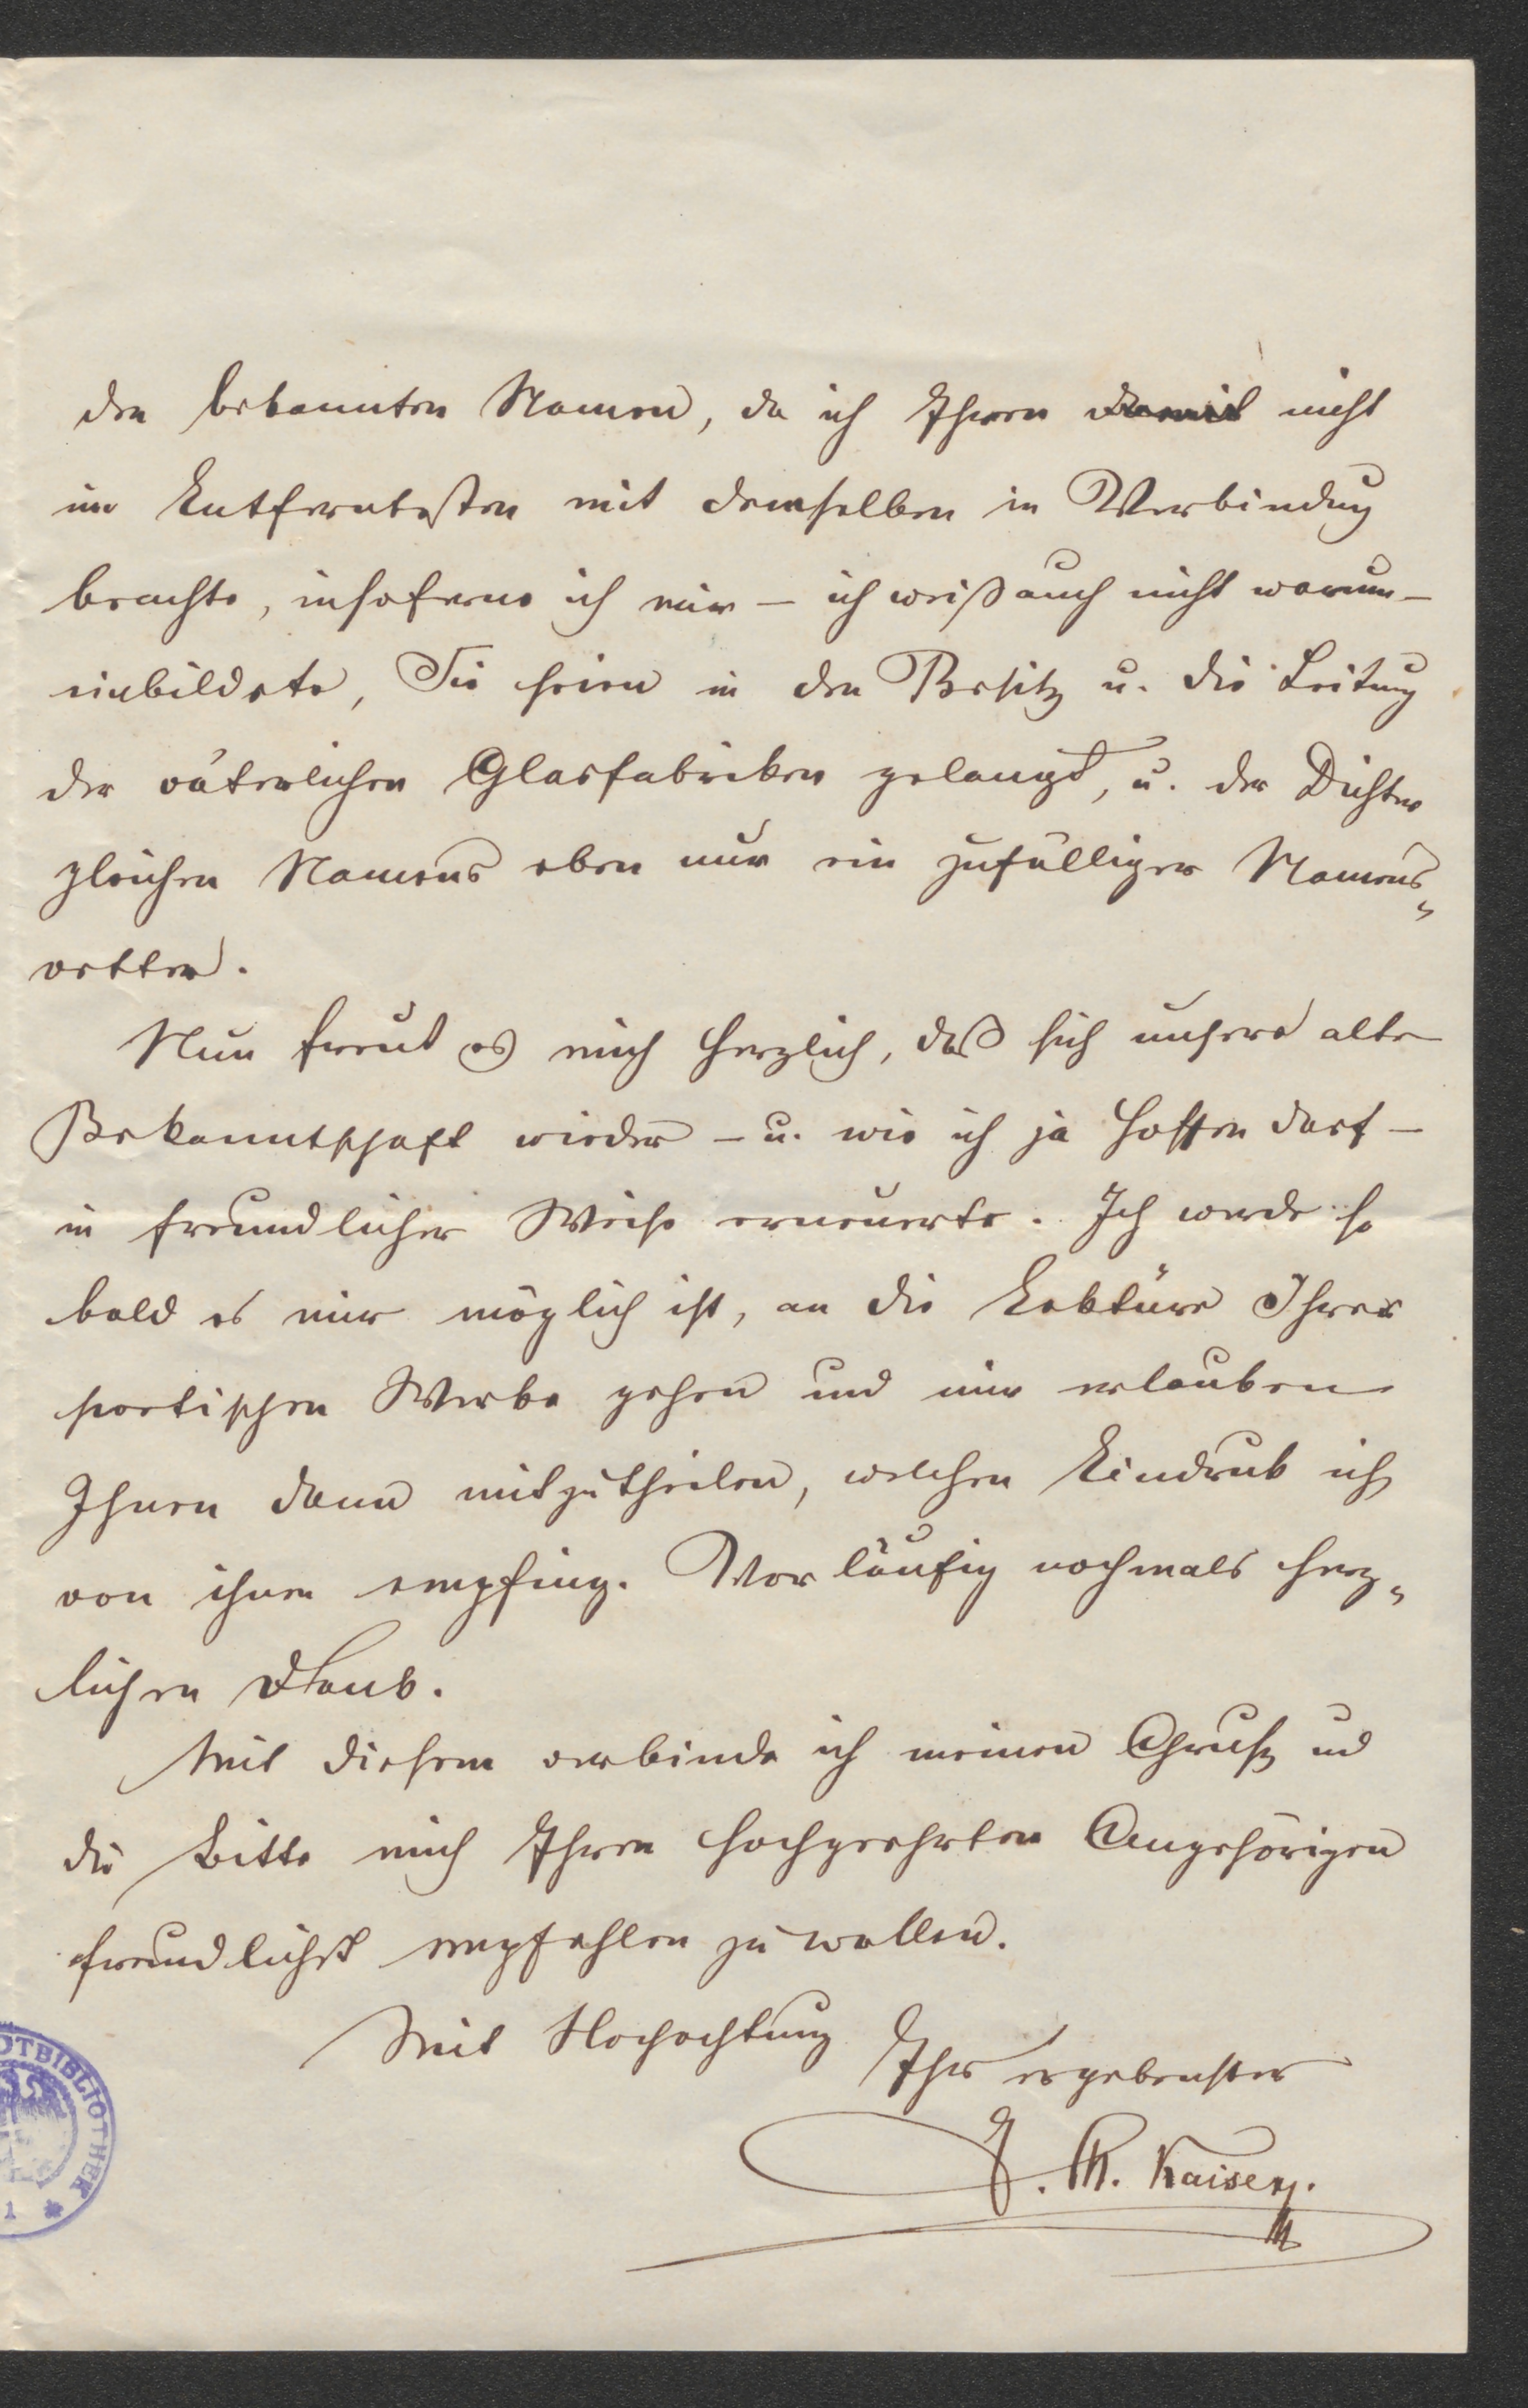 den bekannten Namen, da ich Ihren damit nicht
im Entferntesten mit demselben in Verbindung
brachte, insoferne ich mir – ich weiß auch nicht warum –
einbildete, Sie seien in den Besitz u. die Leitung
der väterlichen Glasfabriken gelangt, u. der Dichter
gleichen Namens eben nur ein zufälliger Namens„
vetter.
Nun freut es mich herzlich, daß sich unsere alte
Bekanntschaft wieder – u. wie ich ja hoffen darf –
in freundlicher Weise erneuerte. Ich werde so
bald es mir möglich ist, an die Lektüre Ihrer
poetischen Werke gehen und mir erlauben
Ihnen dann mitzutheilen, welchen Eindruk ich
von ihnen empfing. Vorläufig nochmals herz„
lichen Dank.
Mit diesem verbinde ich meinen Gruß und
die Bitte mich Ihren hochgeehrten Angehörigen
freundlichst empfehlen zu wollen.
Mit Hochachtung
Ihr ergebenster
J. M. Kaiser.
OTBIBLIOTHEK
1 *